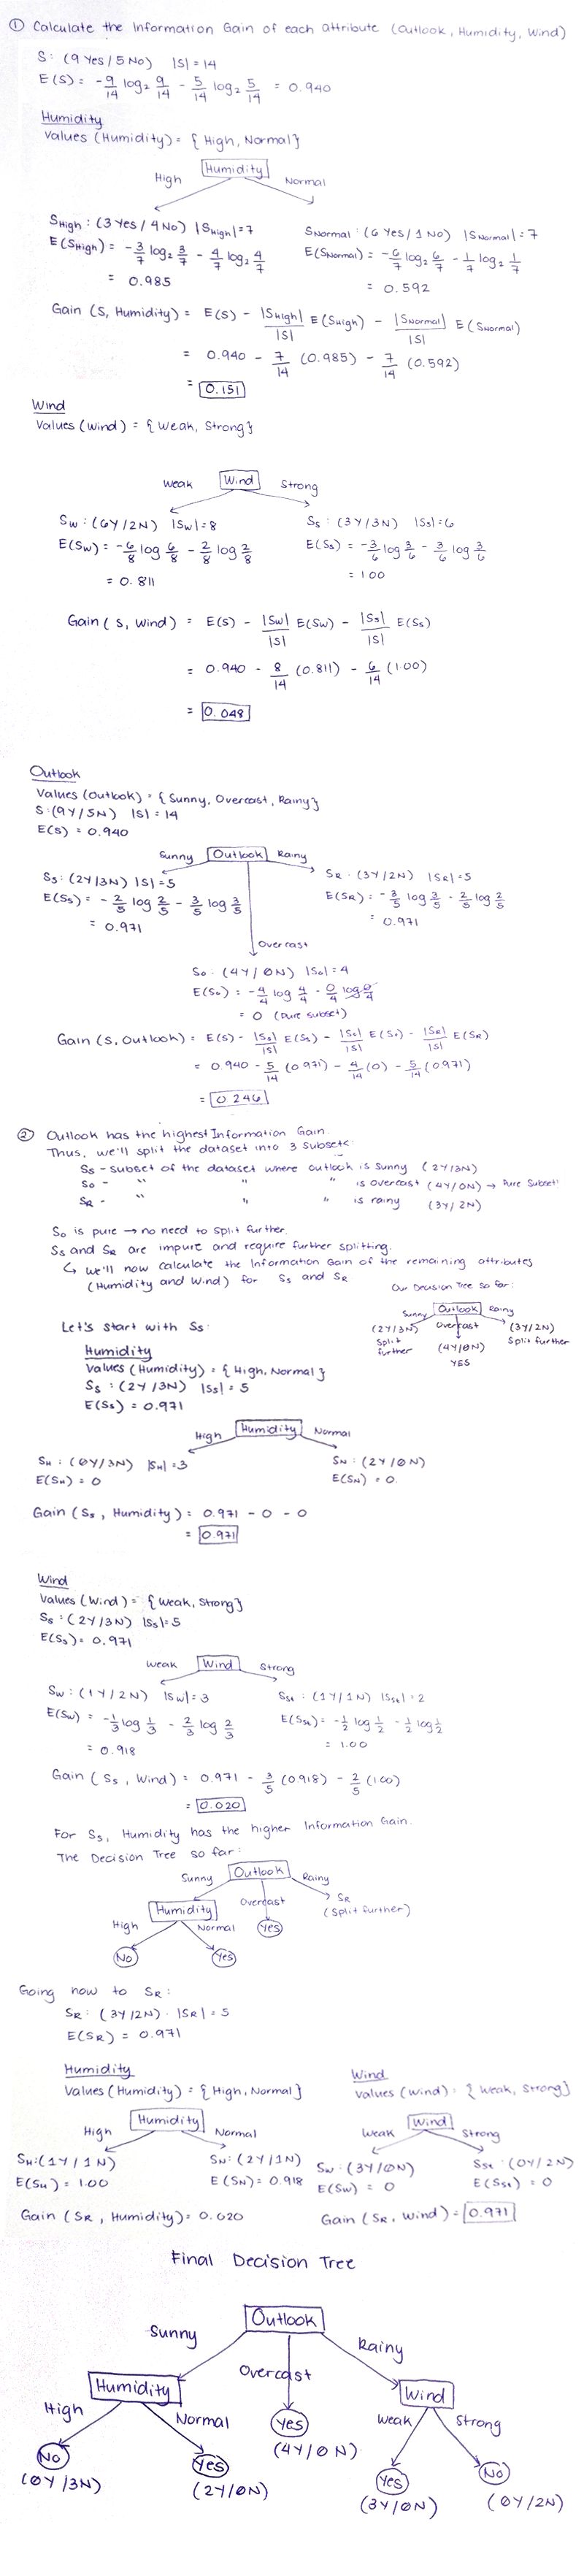 ① Calculate the Information Gain of each attribute (Outlook, Humidity, Wind)
S: (9 Yes / 5 No) |S| = 14
E(S) = -9/14 log₂ 9/14 - 5/14 log₂ 5/14 = 0.940
Humidity
Values (Humidity) = {High, Normal}
Humidity
High Normal
SHigh : (3 Yes / 4 No) |SHigh| = 7
E(SHigh) = -3/7 log₂ 3/7 - 4/7 log₂ 4/7
= 0.985
SNormal : (6 Yes / 1 No) |SNormal| = 7
E(SNormal) = -6/7 log₂ 6/7 - 1/7 log₂ 1/7
= 0.592
Gain (S, Humidity) = E(S) - |SHigh|/|S| E(SHigh) - |SNormal|/|S| E(SNormal)
= 0.940 - 7/14 (0.985) - 7/14 (0.592)
= 0.151
Wind
Values (Wind) = {Weak, Strong}
Weak Wind Strong
Sw : (6Y/2N) |Sw| = 8
E(Sw) = -6/8 log 6/8 - 2/8 log 2/8
= 0.811
Ss : (3Y/3N) |Ss| = 6
E(Ss) = -3/6 log 3/6 - 3/6 log 3/6
= 1.00
Gain (S, Wind) = E(S) - |Sw|/|S| E(Sw) - |Ss|/|S| E(Ss)
= 0.940 - 8/14 (0.811) - 6/14 (1.00)
= 0.048
Outlook
Values (Outlook) = {Sunny, Overcast, Rainy}
S: (9Y/5N) |S| = 14
E(S) = 0.940
Sunny Outlook Rainy
Ss : (2Y/3N) |S| = 5
E(Ss) = -2/5 log 2/5 - 3/5 log 3/5
= 0.971
SR : (3Y/2N) |SR| = 5
E(SR) = -3/5 log 3/5 - 2/5 log 2/5
= 0.971
Overcast
So : (4Y/0N) |So| = 4
E(So) = -4/4 log 4/4 - 0/4 log 0/4
= 0 (pure subset)
Gain (S, Outlook) = E(S) - |Ss|/|S| E(Ss) - |So|/|S| E(So) - |SR|/|S| E(SR)
= 0.940 - 5/14 (0.971) - 4/14 (0) - 5/14 (0.971)
= 0.246
② Outlook has the highest Information Gain.
Thus, we'll split the dataset into 3 subsets:
Ss - subset of the dataset where outlook is sunny (2Y/3N)
So - " " " is overcast (4Y/0N) → Pure Subset!
SR - " " " is rainy (3Y/2N)
So is pure → no need to split further.
Ss and SR are impure and require further splitting.
↳ we'll now calculate the Information Gain of the remaining attributes
(Humidity and Wind) for Ss and SR
Our Decision Tree so far:
Sunny Outlook Rainy
(2Y/3N) Overcast (3Y/2N)
Split further (4Y/0N) Split further
YES
Let's start with Ss:
Humidity
Values (Humidity) = {High, Normal}
Ss : (2Y/3N) |Ss| = 5
E(Ss) = 0.971
High Humidity Normal
SH : (0Y/3N) |SH| = 3
E(SH) = 0
SN : (2Y/0N)
E(SN) = 0.
Gain (Ss, Humidity) = 0.971 - 0 - 0
= 0.971
Wind
Values (Wind) = {Weak, Strong}
Ss : (2Y/3N) |Ss| = 5
E(Ss) = 0.971
Weak Wind Strong
Sw : (1Y/2N) |Sw| = 3
E(Sw) = -1/3 log 1/3 - 2/3 log 2/3
= 0.918
Sst : (1Y/1N) |Sst| = 2
E(Sst) = -1/2 log 1/2 - 1/2 log 1/2
= 1.00
Gain (Ss, Wind) = 0.971 - 3/5 (0.918) - 2/5 (1.00)
= 0.020
For Ss, Humidity has the higher Information Gain.
The Decision Tree so far:
Sunny Outlook Rainy
Humidity Overcast SR
(split further)
High Normal Yes
No Yes
Going now to SR:
SR : (3Y/2N) . |SR| = 5
E(SR) = 0.971
Humidity
Values (Humidity) = {High, Normal}
High Humidity Normal
SH : (1Y/1N)
E(SH) = 1.00
SN : (2Y/1N)
E(SN) = 0.918
Gain (SR, Humidity) = 0.020
Wind
Values (Wind) = {Weak, Strong}
Weak Wind Strong
Sw : (3Y/0N)
E(Sw) = 0
Sst : (0Y/2N)
E(Sst) = 0
Gain (SR, Wind) = 0.971
Final Decision Tree
Outlook
Sunny Overcast Rainy
Humidity Yes Wind
(4Y/0N)
High Normal Weak Strong
No Yes Yes No
(0Y/3N) (2Y/0N) (3Y/0N) (0Y/2N)